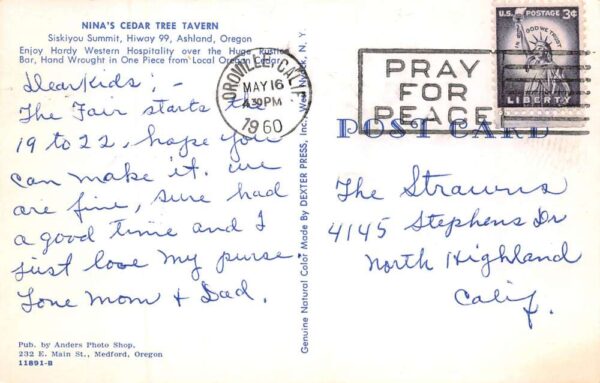 NINA'S CEDAR TREE TAVERN
Siskiyou Summit, Hiway 99, Ashland, Oregon
Enjoy Hardy Western Hospitality over the Huge Rustic
Bar, Hand Wrought in One Piece from Local Oregon Cedar
Dear Kids; -
The Fair starts the
19 to 22, hope you
can make it. we
are fine, sure had
a good time and I
just love my purse.
Love Mom & Dad.
Pub. by Anders Photo Shop,
232 E. Main St., Medford, Oregon
11891-B
Genuine Natural Color Made by DEXTER PRESS, Inc., West Nyack, N. Y.
OROVILLE, CALIF.
MAY 16
430PM
1960
PRAY
FOR
PEACE
U.S. POSTAGE 3¢
IN GOD WE TRUST
LIBERTY
POST CARD
The Strawns
4145 Stephens Dr
North Highland
Calif.